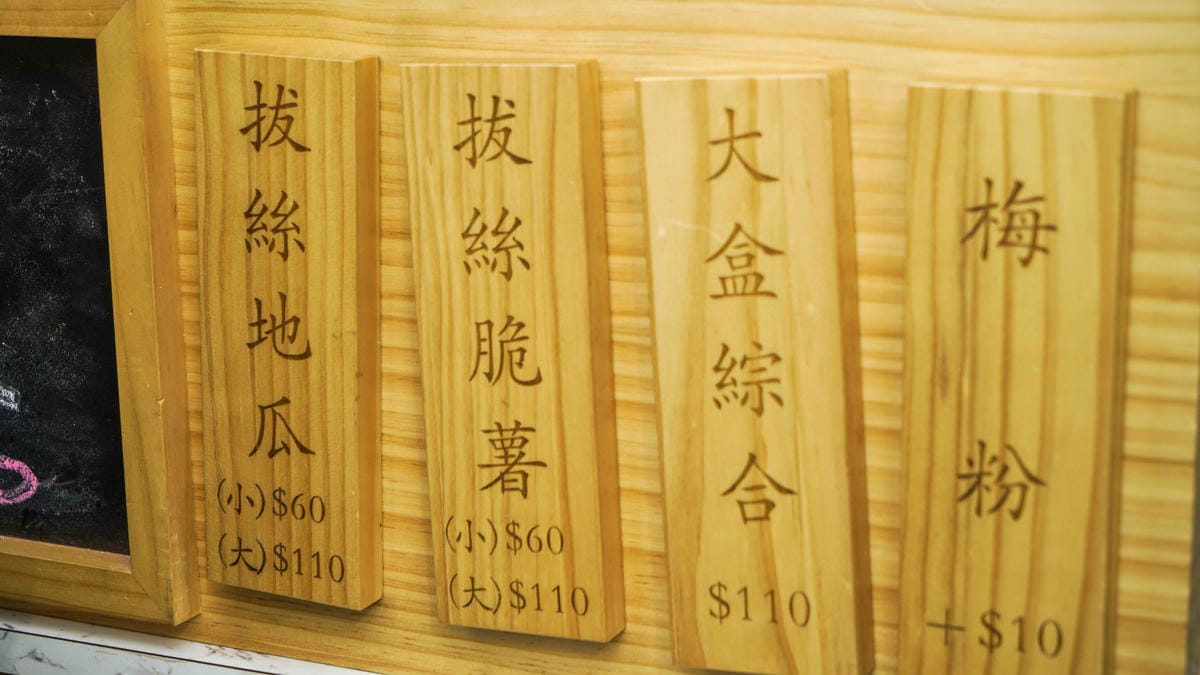 拔絲地瓜
(小)$60
(大)$110
拔絲脆薯
(小)$60
(大)$110
大盒綜合
$110
梅粉
+$10